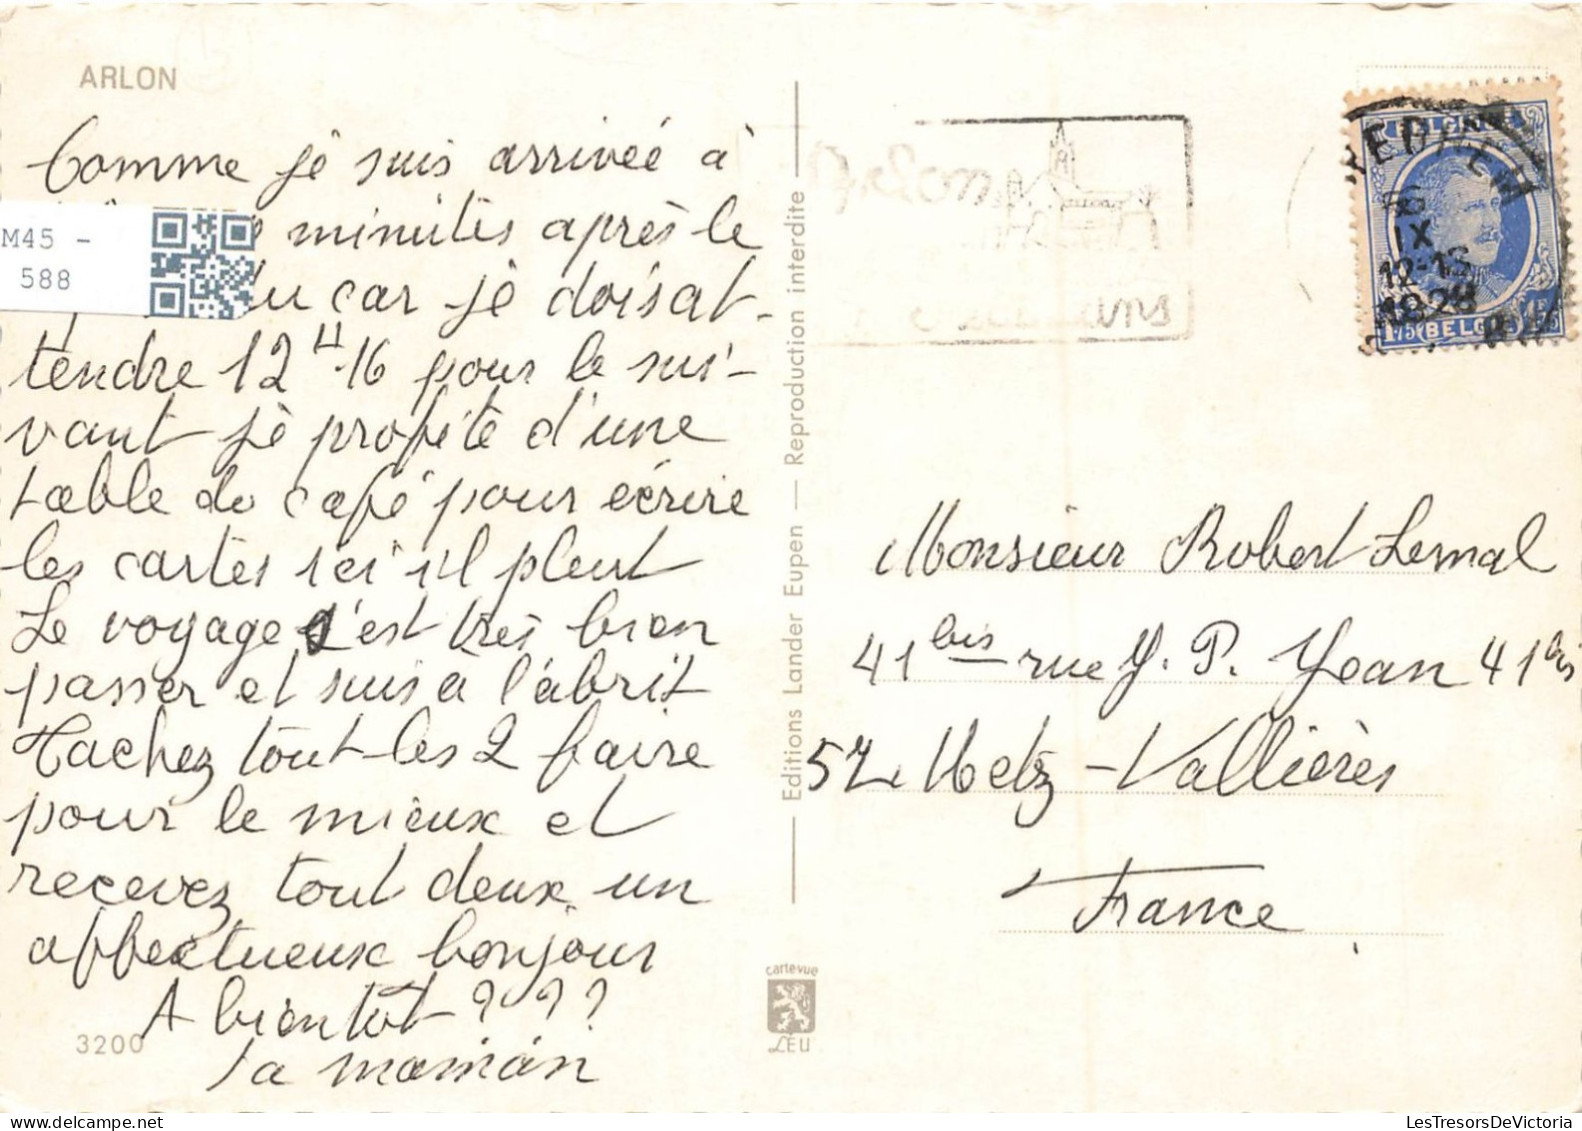 ARLON
Comme je suis arrivée à
minutes après le
du car je dois at-
tendre 12 H 16 pour le sui-
vant je profite d'une
table de café pour écrire
les cartes ici il pleut
Le voyage s'est très bien
passer et suis a l'abrit
Tachez tout les 2 faire
pour le mieux et
recevez tout deux un
affectueux bonjour
A bientôt ? ? ?
ta maman
3200
M45 -
588
Editions Lander Eupen — Reproduction interdite
carte vue
LEU
Arlon
BELGIQUE
IX
12-13
1928
1F75 BELGIË 1F75
Monsieur Robert Lemal
41 bis rue J. P. Jean 41 bis
57 Metz-Vallières
France
LesTresorsDeVictoria